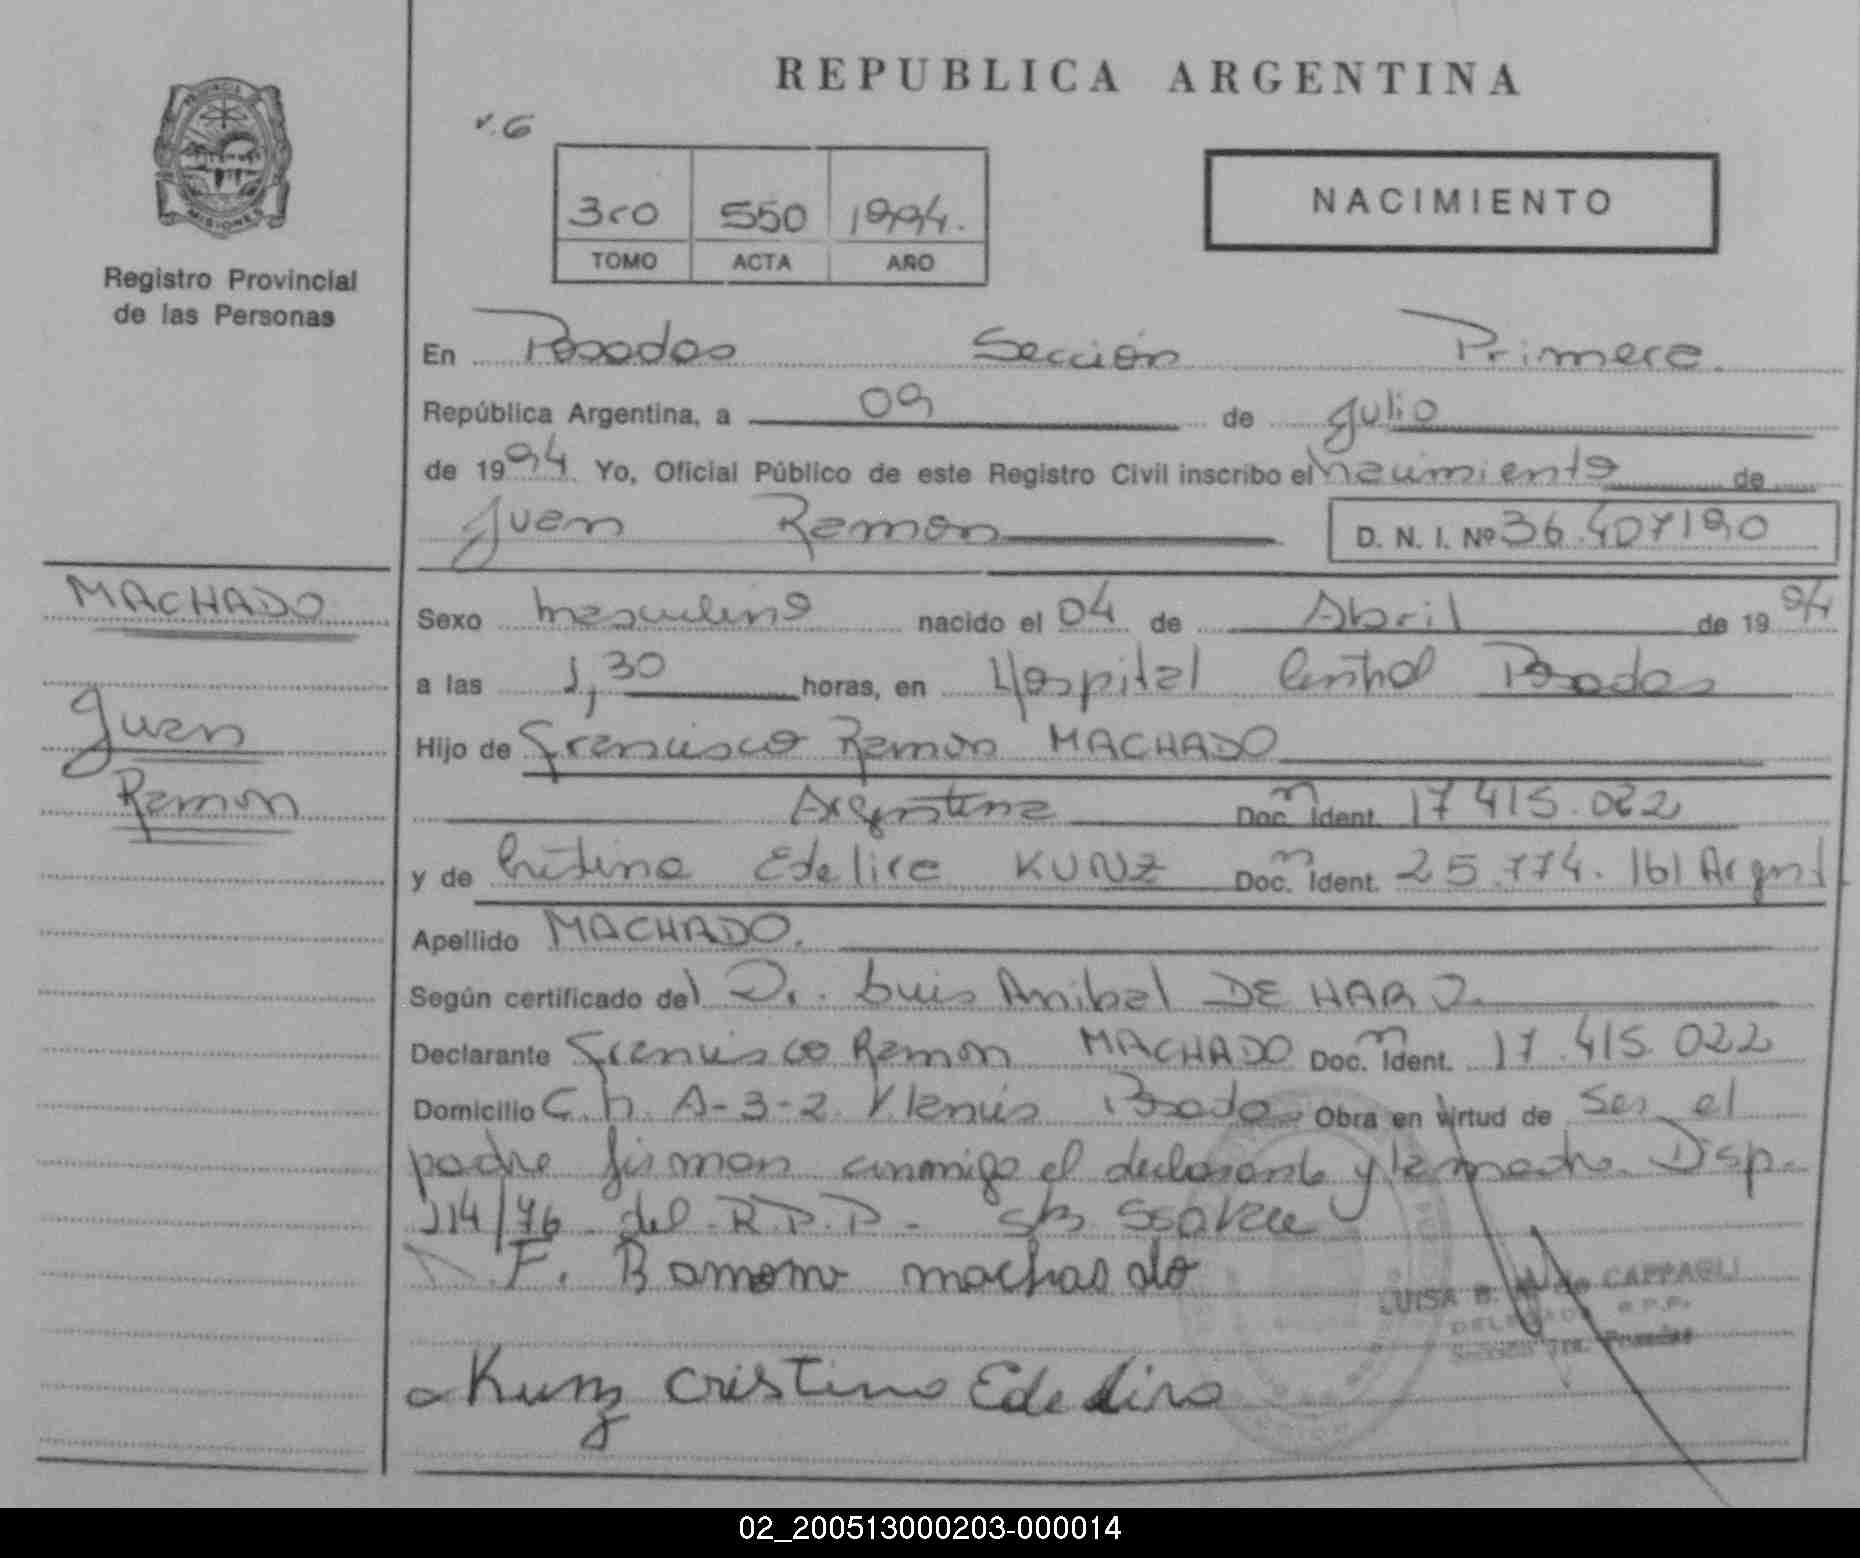 REPUBLICA ARGENTINA
PROVINCIA
MISIONES
Registro Provincial
de las Personas
v.6
3ro 550 1994.
TOMO ACTA AÑO
NACIMIENTO
En Posadas Sección Primera
República Argentina, a 09 de Julio
de 1994. Yo, Oficial Público de este Registro Civil inscribo el nacimiento de
Juan Ramon D. N. I. Nº 36.407190
MACHADO
Juan
Ramon
Sexo masculino nacido el 04 de Abril de 1994
a las 1,30 horas, en Hospital Central Posadas
Hijo de Francisco Ramon MACHADO
Argentina Doc. Ident. 17 415.022
y de Cristina Edelira KUNZ Doc. Ident. 25.774.161 Argent
Apellido MACHADO.
Según certificado del Dr. Luis Anibal DE HARO.
Declarante Francisco Ramon MACHADO Doc. Ident. 17.415.022
Domicilio C.h. A-3-2 Posadas Obra en virtud de ser el
padre firman conmigo el declarante y la madre Disp.
114/76 del R.P.P.-
F. Ramom machas do
Kunz Cristina Edelira
LUISA B. de CAPPAGLI
DELEGADA R.P.P.
02_200513000203-000014